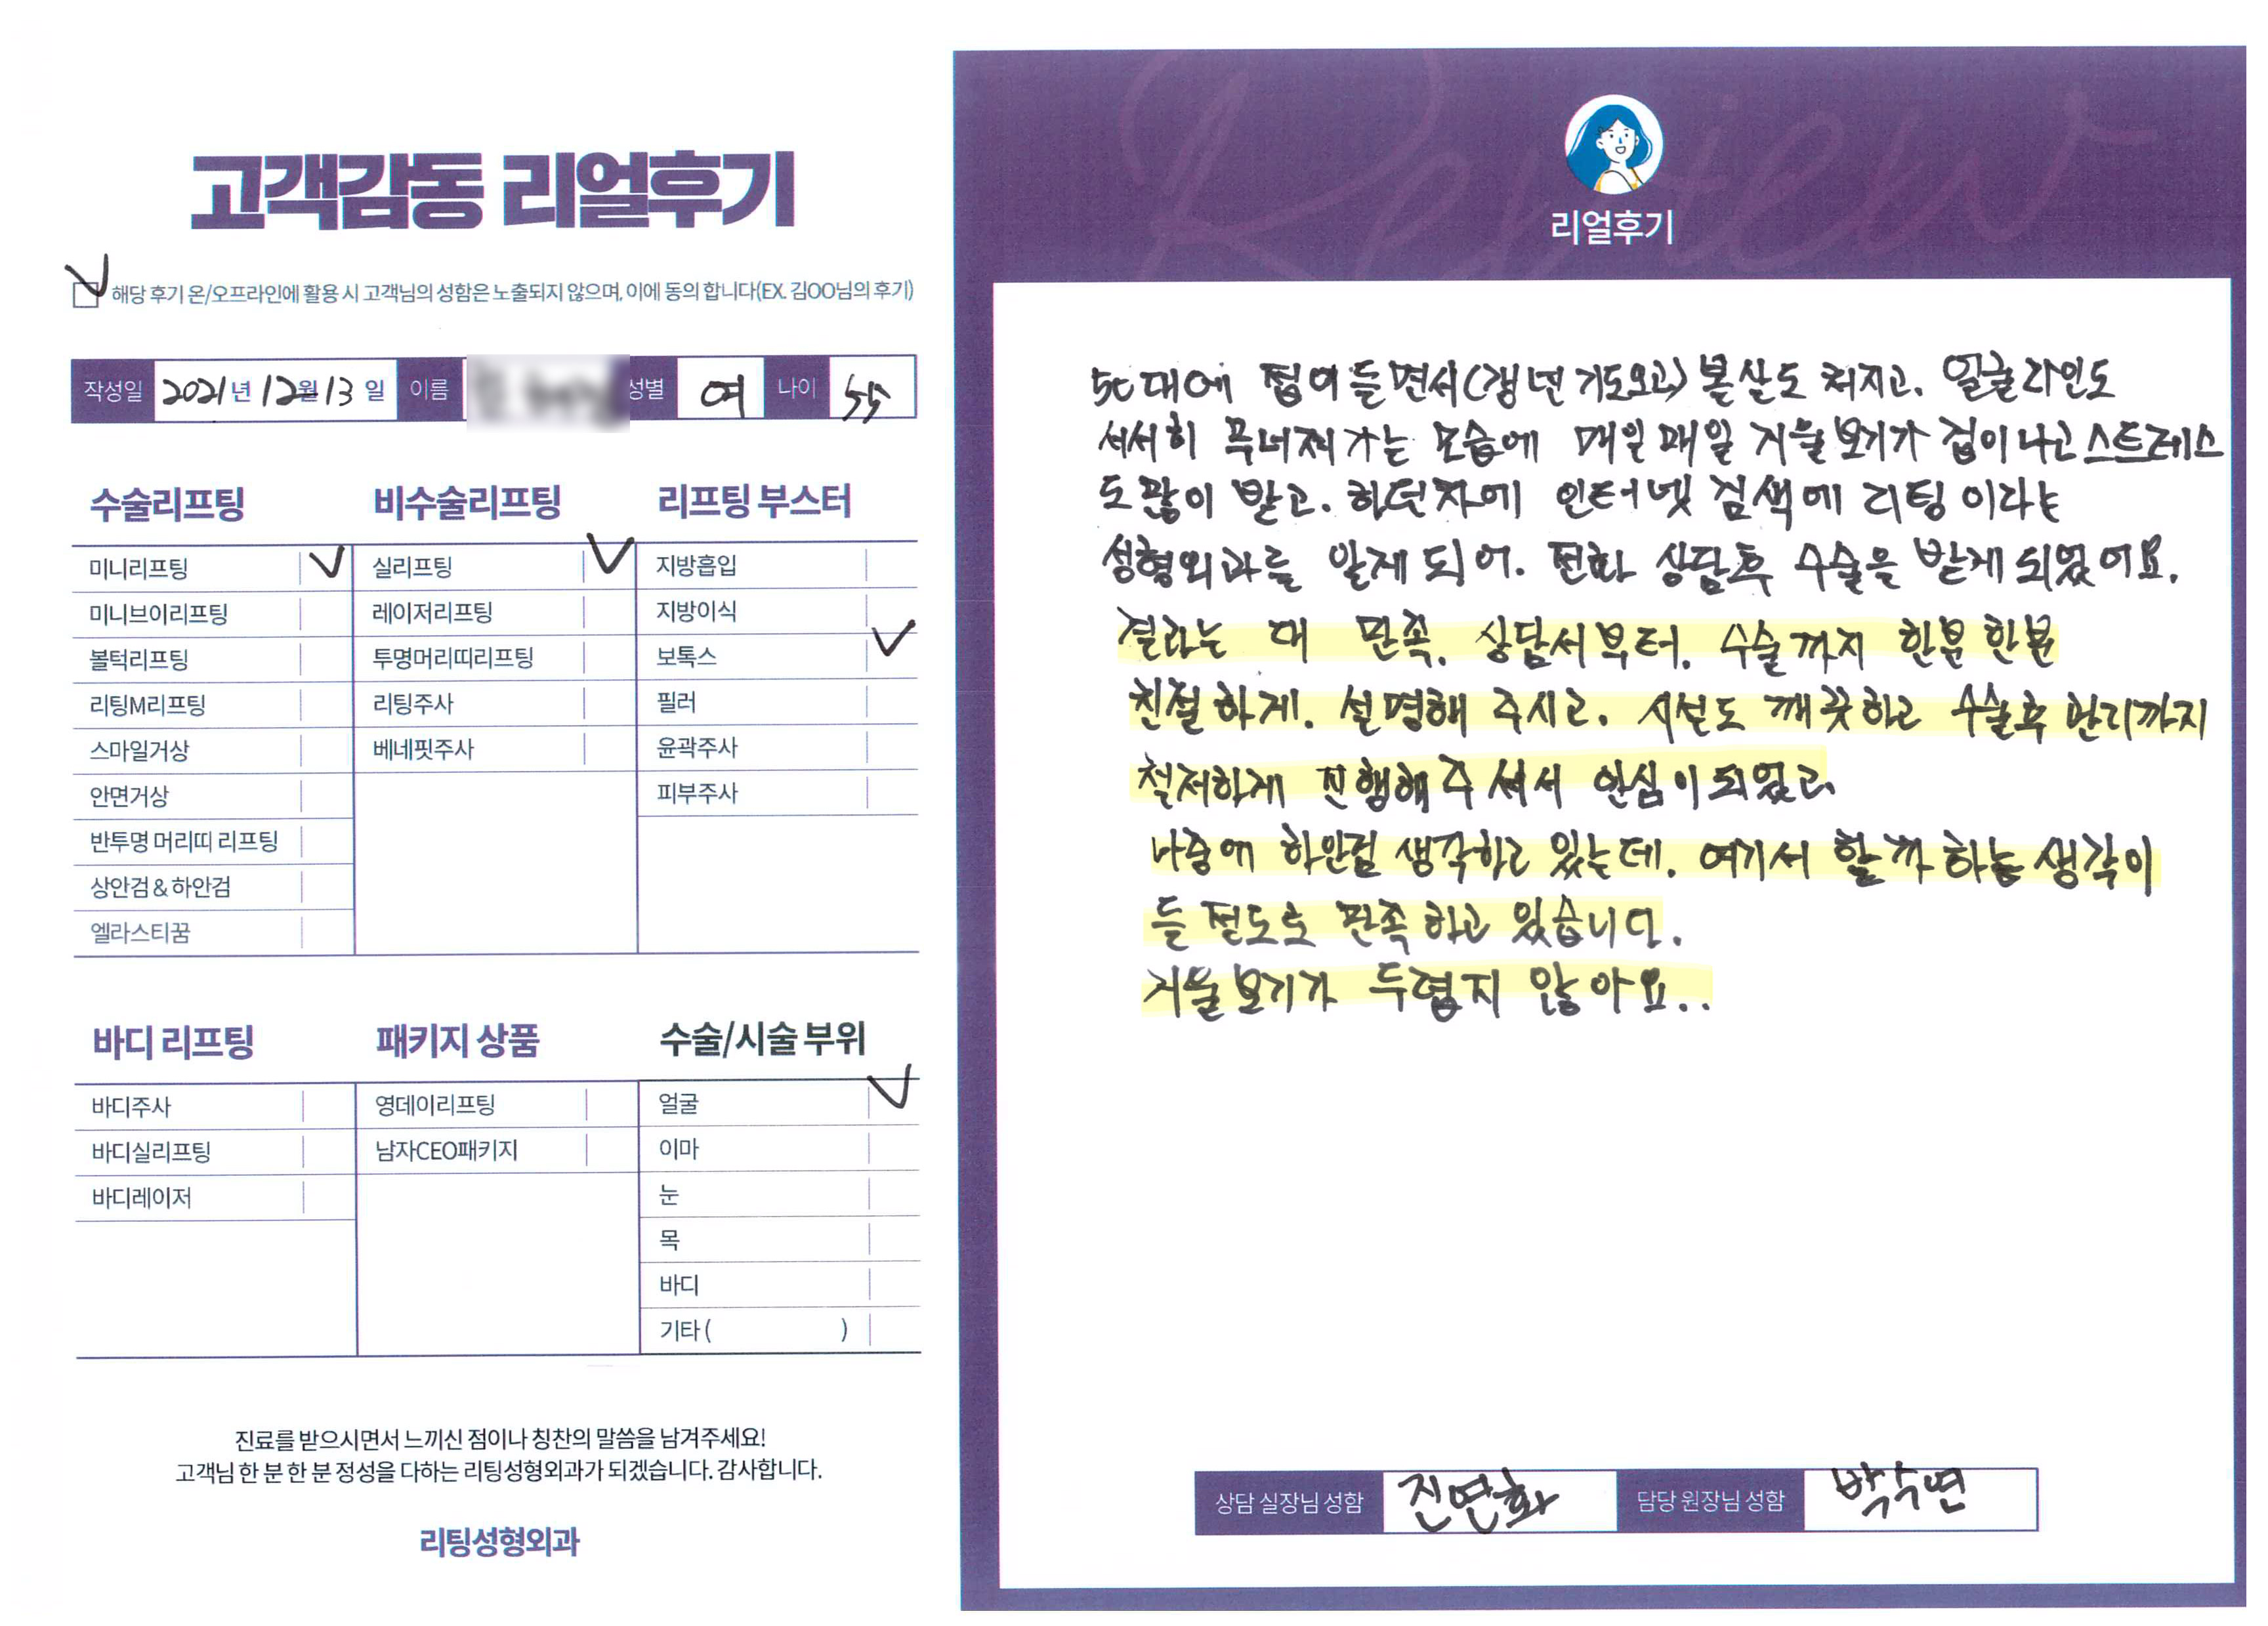 고객감동 리얼후기
해당 후기 온/오프라인에 활용 시 고객님의 성함은 노출되지 않으며, 이에 동의 합니다(EX. 김OO님의 후기)
작성일 2021년 12월 13일 이름 성별 여 나이 55
수술리프팅
미니리프팅
미니브이리프팅
볼턱리프팅
리팅M리프팅
스마일거상
안면거상
반투명 머리띠 리프팅
상안검 & 하안검
엘라스티꿈
비수술리프팅
실리프팅
레이저리프팅
투명머리띠리프팅
리팅주사
베네핏주사
리프팅 부스터
지방흡입
지방이식
보톡스
필러
윤곽주사
피부주사
바디 리프팅
바디주사
바디실리프팅
바디레이저
패키지 상품
영데이리프팅
남자CEO패키지
수술/시술 부위
얼굴
이마
눈
목
바디
기타 ( )
진료를 받으시면서 느끼신 점이나 칭찬의 말씀을 남겨주세요!
고객님 한 분 한 분 정성을 다하는 리팅성형외과가 되겠습니다. 감사합니다.
리팅성형외과
Review
리얼후기
50대에 접어들면서(갱년기도오고) 볼살도 쳐지고. 얼굴라인도
서서히 무너져가는 모습에 매일매일 거울보기가 겁이나고 스트레스
도 많이 받고. 하던차에 인터넷 검색에 리팅 이라는
성형외과를 알게 되어. 전화 상담후 수술을 받게 되었어요.
결과는 대 만족. 상담서부터. 수술까지 한분한분
친절하게. 설명해 주시고. 시설도 깨끗하고 수술후 관리까지
철저하게 진행해 주셔서 안심이 되었고
나중에 하안검 생각하고 있는데. 여기서 할까 하는 생각이
들 정도로 만족하고 있습니다.
거울보기가 두렵지 않아요..
상담 실장님 성함 진연화 담당 원장님 성함 박수연